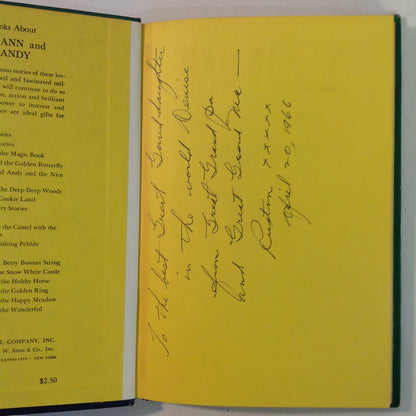 ooks About
ANN and
ANDY
ous stories of these lov-
ed and fascinated mil-
will continue to do so
on, action and brilliant
power to interest and
ors are ideal gifts for
tories
tories
the Magic Book
d the Golden Butterfly
d Andy and the Nice
the Deep Deep Woods
Cookie Land
ry Stories
the Camel with the
ishing Pebble
Betsy Bonnet String
he Snow White Castle
the Hobby Horse
the Golden Ring
the Happy Meadow
the Wonderful
L COMPANY, INC.
W. Sams & Co., Inc.
KANSAS CITY - NEW YORK
$2.50
To the best Great Grand-daughter
in the world Denise
from Great Grand Pa
and Great Grand Ma —
Ruxton xxxxx
April 20, 1966